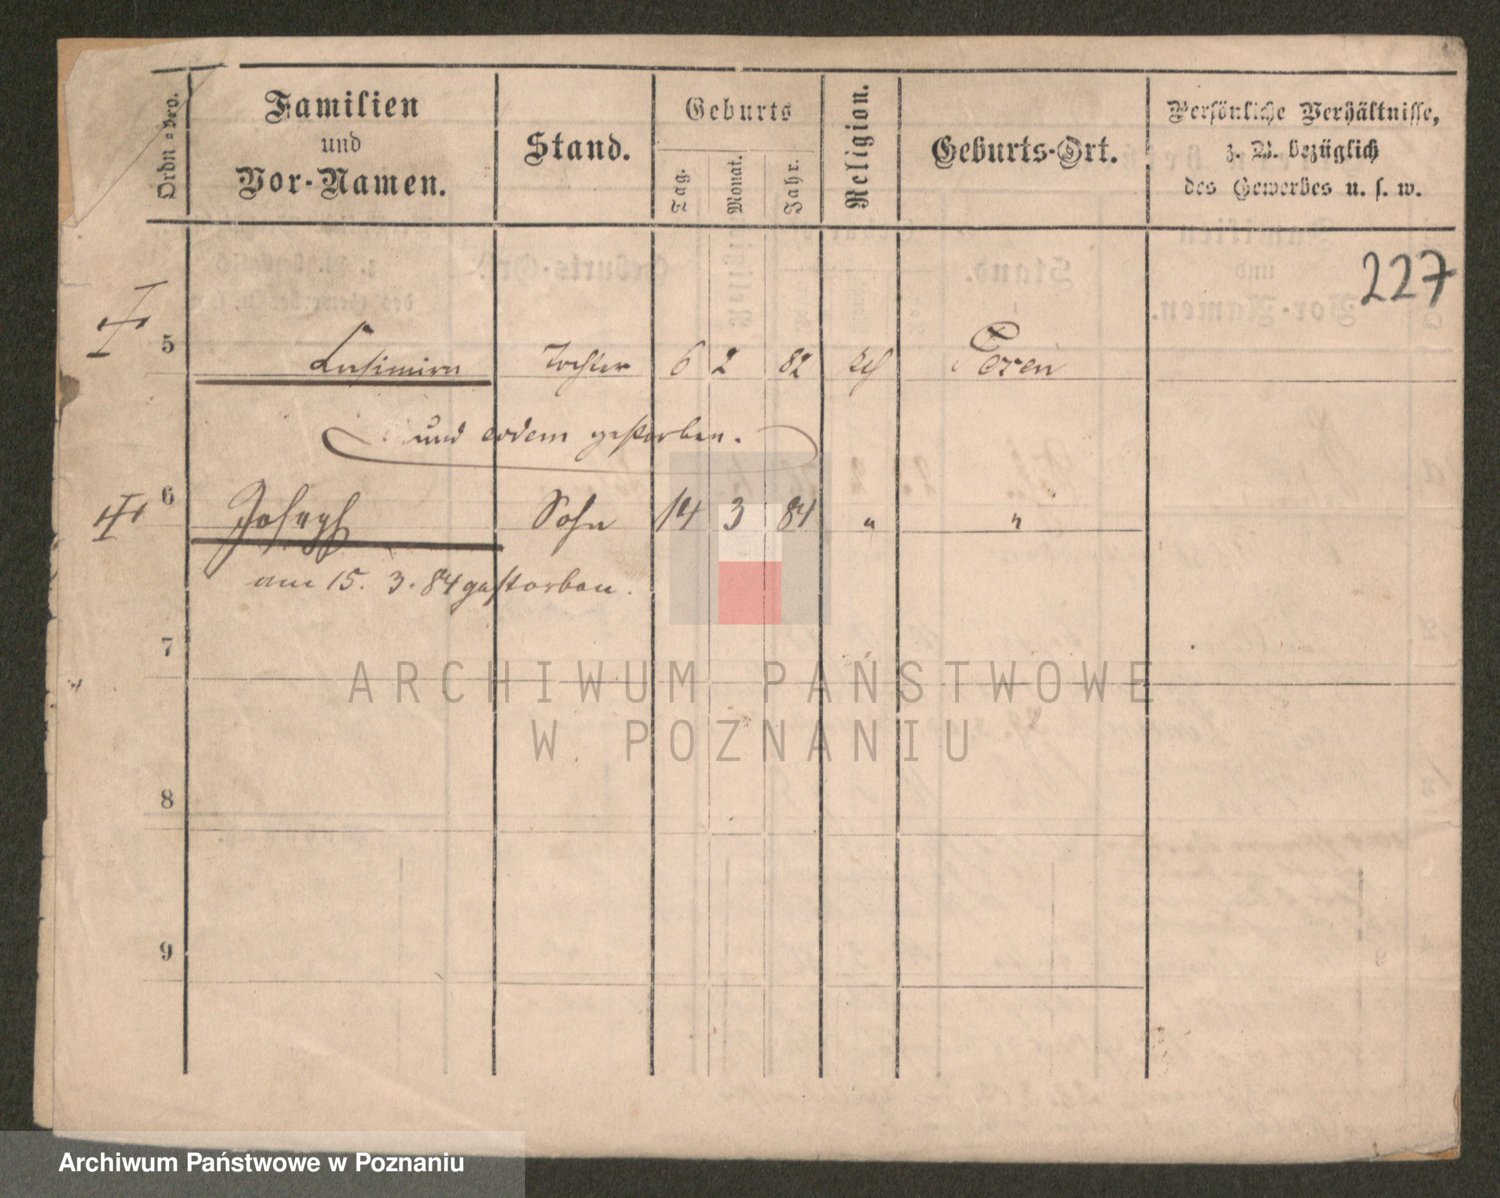 Ordn = Nro.
Familien
und
Vor-Namen.
Stand.
Geburts
Tag.
Monat.
Jahr.
Religion.
Geburts-Ort.
Persönliche Verhältnisse,
z. B. bezüglich
des Gewerbes u. s. w.
227
5 Tochter 6 2 82 Posen
und gestorben.
6 Joseph Sohn 14 3 84 " "
am 15. 3. 84 gestorben.
7
8
9
ARCHIWUM PAŃSTWOWE
W POZNANIU
Archiwum Państwowe w Poznaniu